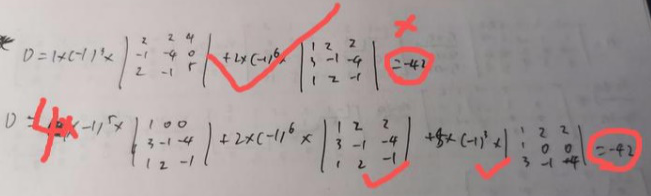 D=1×(-1)³× | 2 2 4 -1 -4 0 2 -1 5 | +2×(-1)⁶× | 1 2 2 3 -1 -4 1 2 -1 | =-42
D= 4×(-1)⁵× | 1 0 0 3 -1 -4 1 2 -1 | +2×(-1)⁶× | 1 2 2 3 -1 -4 1 2 -1 | +5×(-1)³× | 1 2 2 1 0 0 3 -1 -4 | =-42